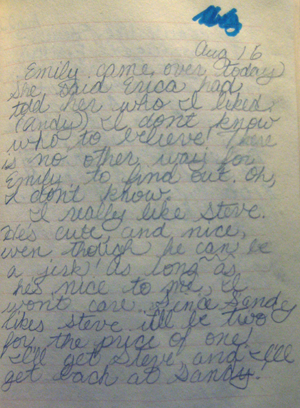 Aug 16
Emily came over today
She said Erica had
told her who I liked.
(Andy) I don't know
who to believe! There
is no other way for
Emily to find out. Oh,
I don't know.
I really like Steve.
He's cute and nice,
even though he can be
a jerk! As long as
he's nice to me, I
won't care. Since Sandy
likes Steve it'll be two
for the price of one.
I'll get Steve and I'll
get back at Sandy!